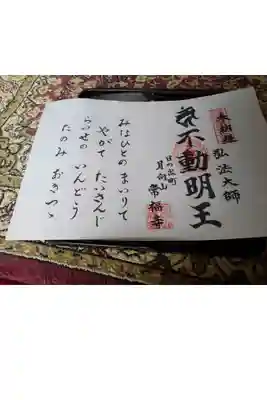 奉納経
弘法大師
不動明王
日の出町
月向山
常福寺
みはひとの まいりて
やがて たいさんじ
らっせの いんどう
たのみ おきつゝ